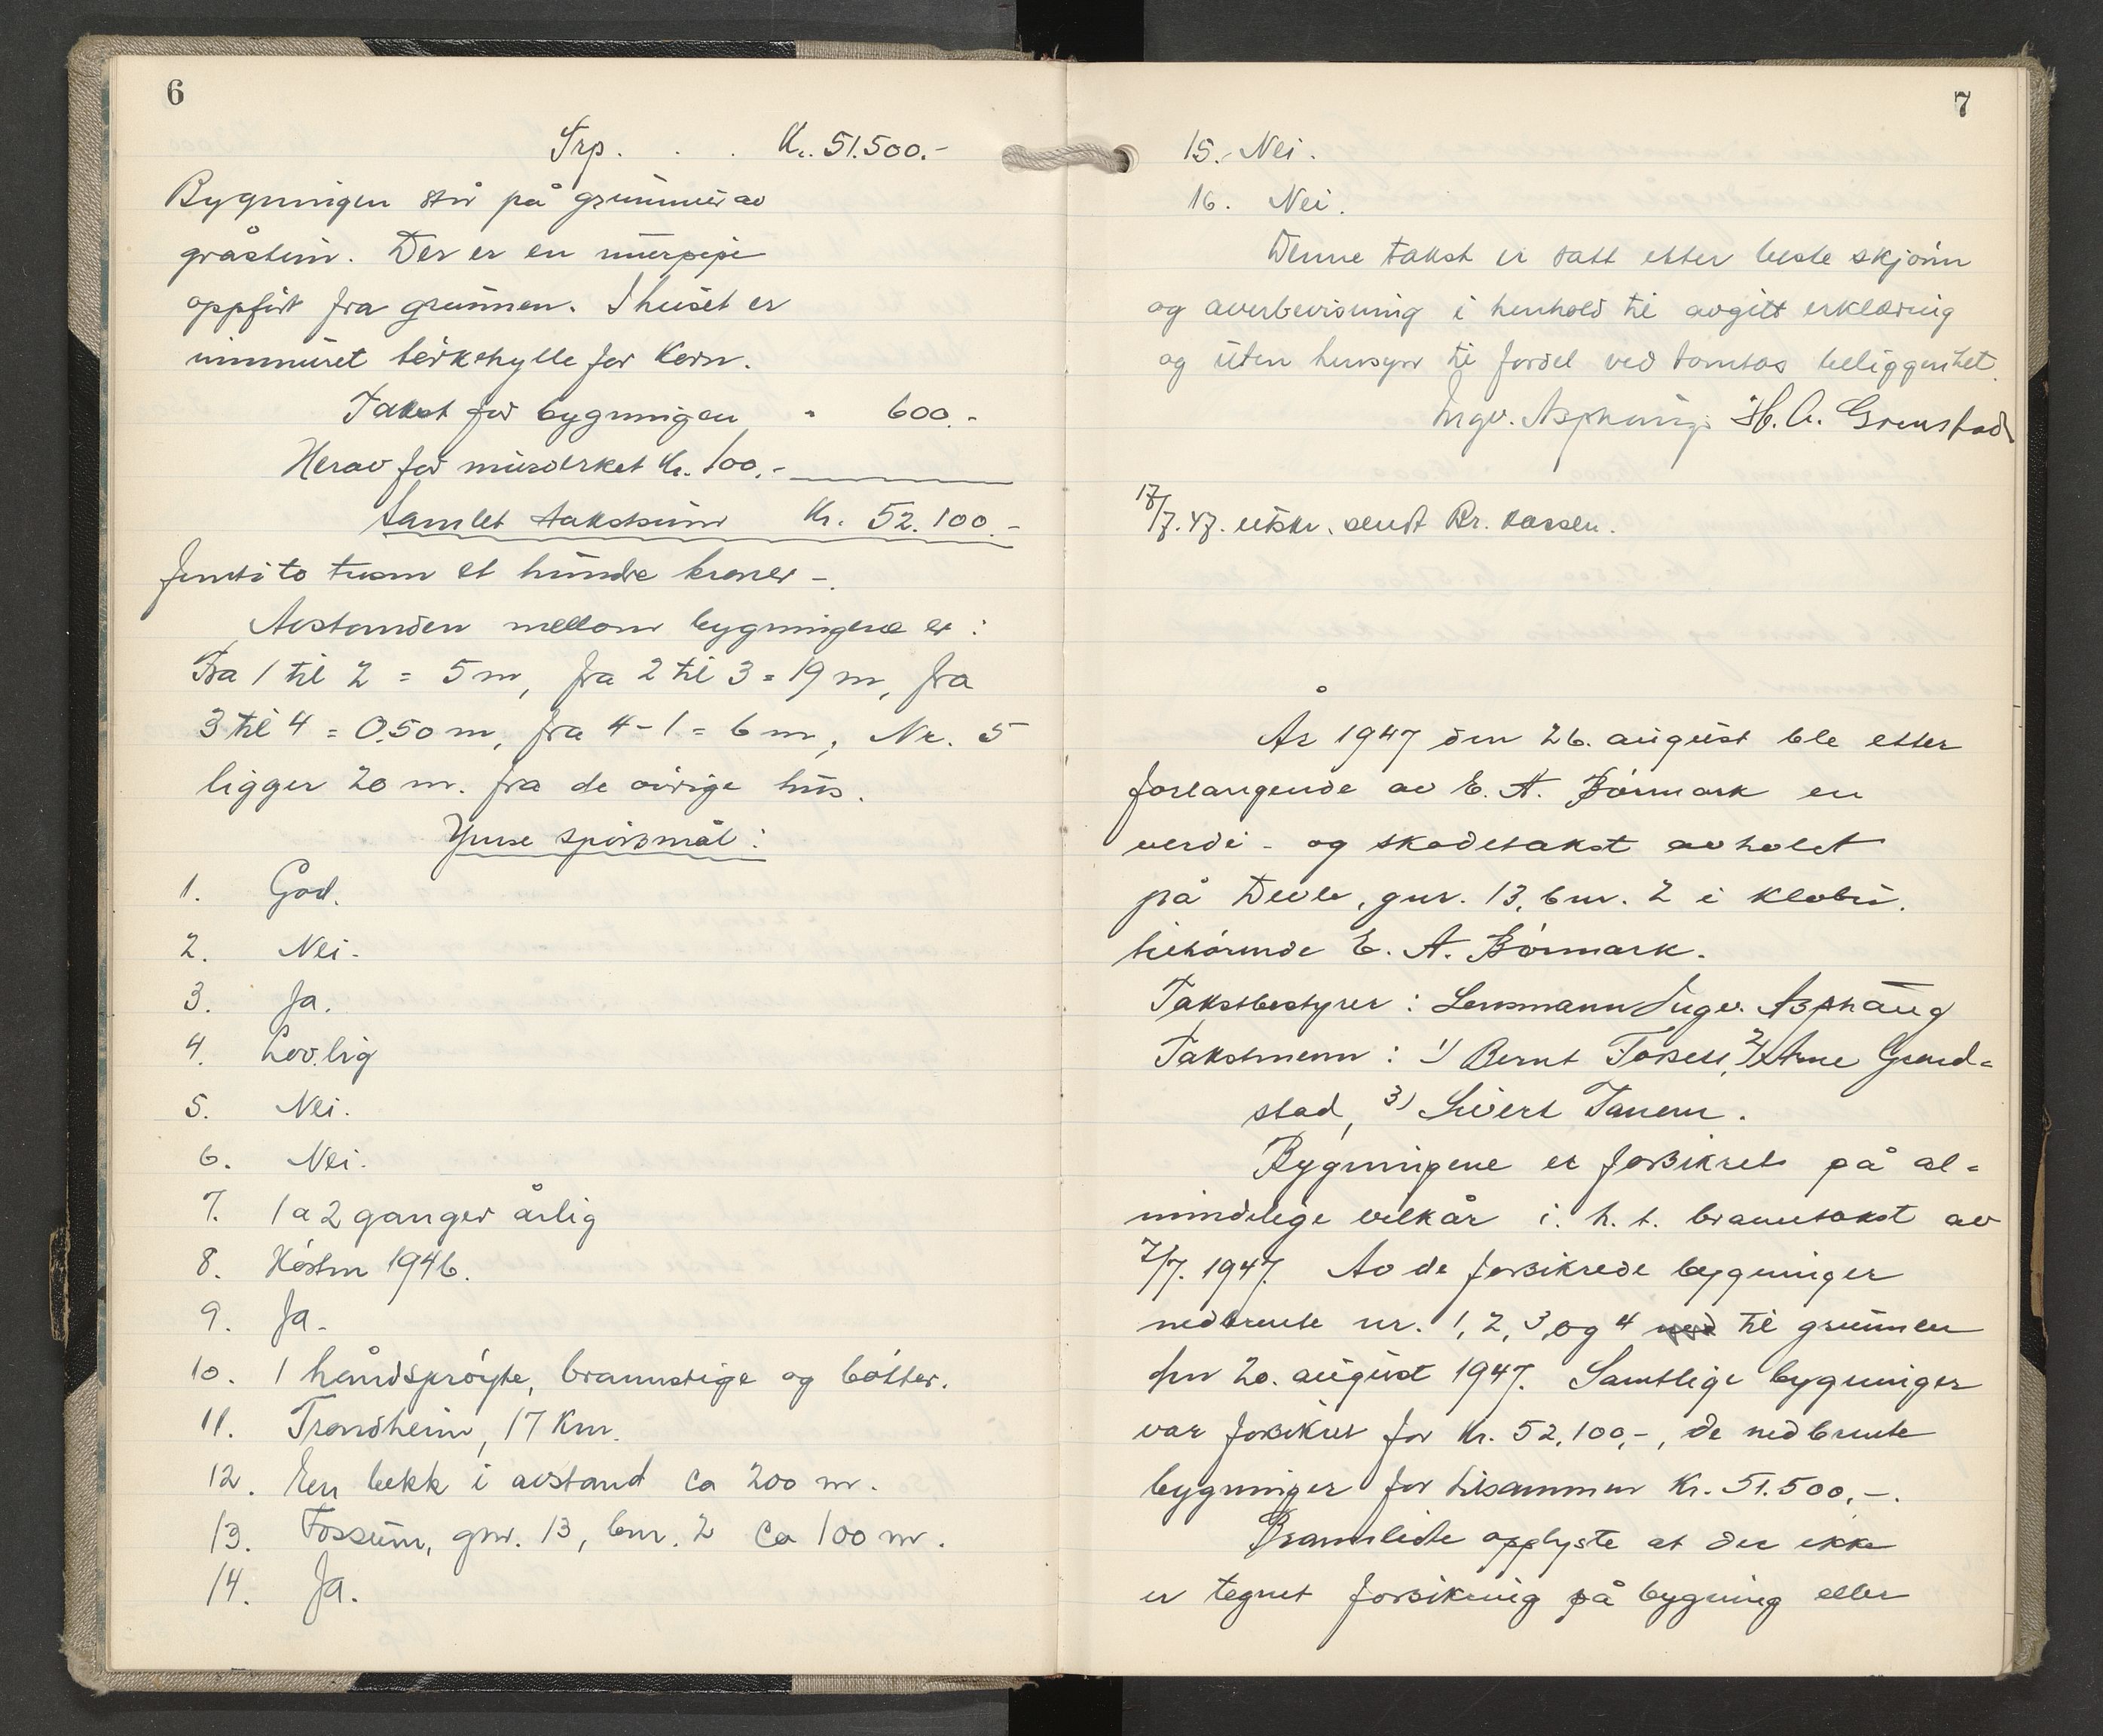 6
Trp. . . Kr. 51.500.-
Bygningen står på grunnmur av
gråstein. Der er en murpipe
oppført fra grunnen. I huset er
innmuret tørkehylle for korn.
Takst for bygningen " 600.-
Herav for murverket kr. 100.-
Samlet takstsum Kr. 52.100.-
Femtito tusen et hundre kroner -.
Avstanden mellom bygningene er:
Fra 1 til 2 = 5 m, fra 2 til 3 = 19 m, fra
3 til 4 = 0.50 m, fra 4 - 1 = 6 m, Nr. 5
ligger 20 m. fra de øvrige hus.
Ymse spørsmål:
1. God.
2. Nei.
3. Ja.
4. Lovlig
5. Nei.
6. Nei.
7. 1 a 2 ganger årlig
8. Høsten 1946.
9. Ja.
10. 1 håndsprøyte, brannstige og bøtter.
11. Trondheim, 17 Km.
12. En bekk i avstand ca 200 m.
13. Fossum, gnr. 13, bnr. 2 ca 100 m.
14. Ja.
7
15. Nei.
16. Nei.
Denne takst er satt etter beste skjønn
og overbevisning i henhold til avgitt erklæring
og uten hensyn til fordel ved tomtas beliggenhet.
Ingv. Asphaug. H. A. Grenstad
17/7.47. utskr. sendt Br. kassen.
År 1947 den 26. august ble etter
forlangende av E. A. Børmark en
verdi- og skadetakst avholdt
på Devle, gnr. 13, bnr. 2 i Klæbu.
tilhørende E. A. Børmark.
Takstbestyrer: Lensmann Ingv. Asphaug
Takstmenn: 1) Bernt Forseth, 2) Arne Grend=
stad, 3) Sivert Tanem.
Bygningene er forsikret på al=
mindelige vilkår i. h. t. branntakst av
7/7. 1947. Av de forsikrede bygninger
nedbrente nr. 1, 2, 3, og 4 ned til grunnen
den 20. august 1947. Samtlige bygninger
var forsikret for kr. 52.100,-, de nedbrente
bygninger for tilsammen Kr. 51.500,-.
Brannlidte opplyste at der ikke
er tegnet forsikring på bygning eller